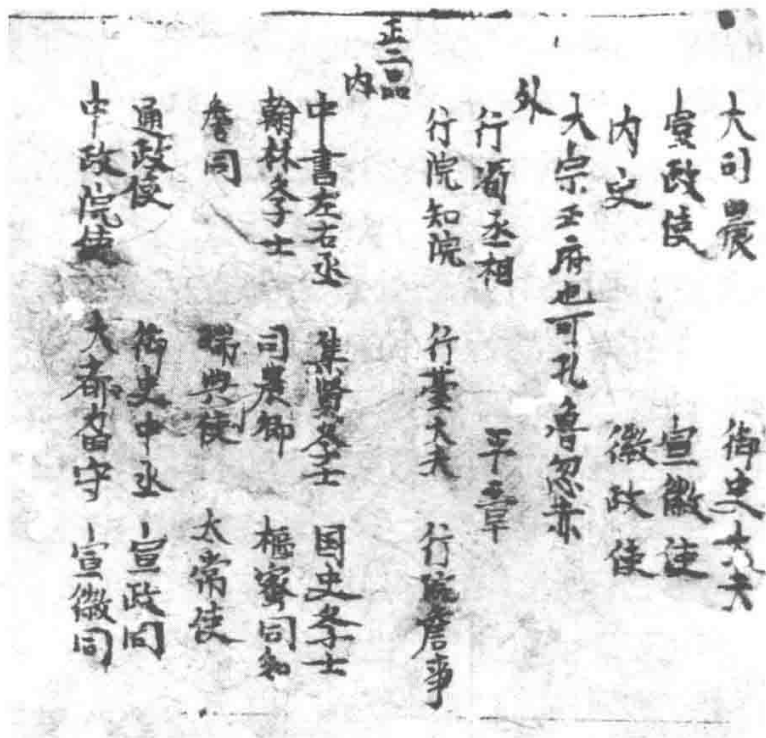 大司農 御史大夫
宣政使 宣徽使
内史 徽政使
大宗正府也可扎魯忽赤
外
行省丞相 平章
行院知院 行臺大夫 行院詹事
正二品
内
中書左右丞 集賢學士 国史學士
翰林學士 司農卿 樞密同知
詹同 瑞典使 太常使
通政使 御史中丞 宣政同
中政院使 大都留守 宣徽同